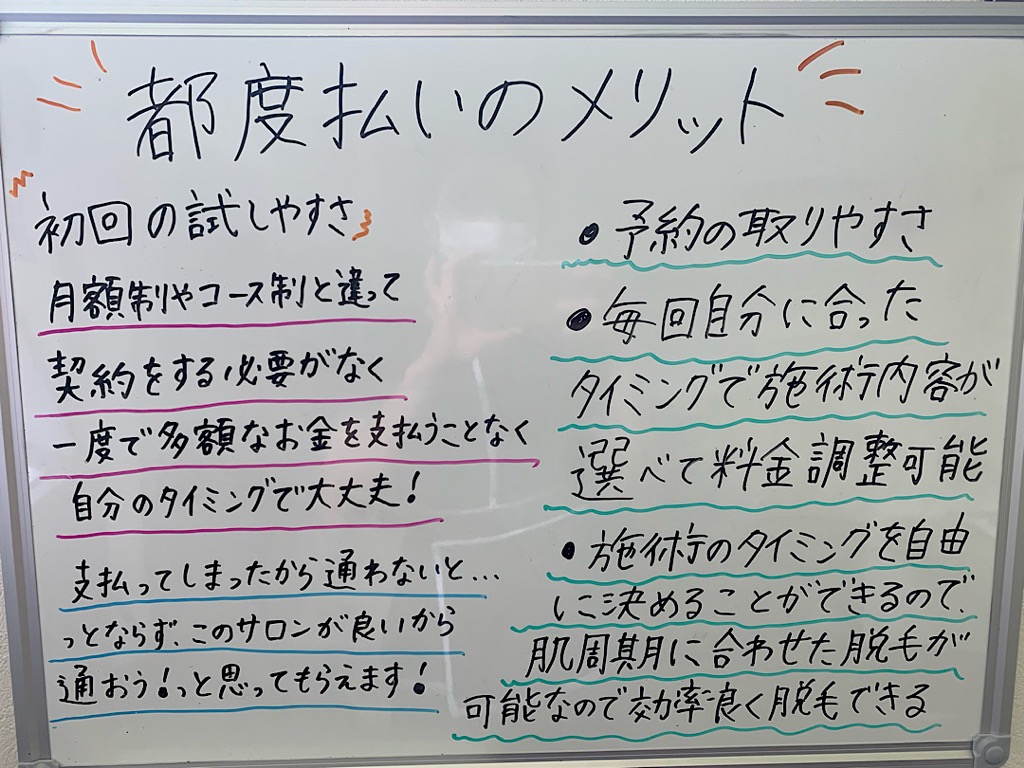 都度払いのメリット
初回の試しやすさ
月額制やコース制と違って
契約をする必要がなく
一度で多額なお金を支払うことなく
自分のタイミングで大丈夫!
支払ってしまったから通わないと...
っとならず、このサロンが良いから
通おう!っと思ってもらえます!
●予約の取りやすさ
●毎回自分に合った
タイミングで施術内容が
選べて料金調整可能
●施術のタイミングを自由
に決めることができるので、
肌周期に合わせた脱毛が
可能なので効率良く脱毛できる